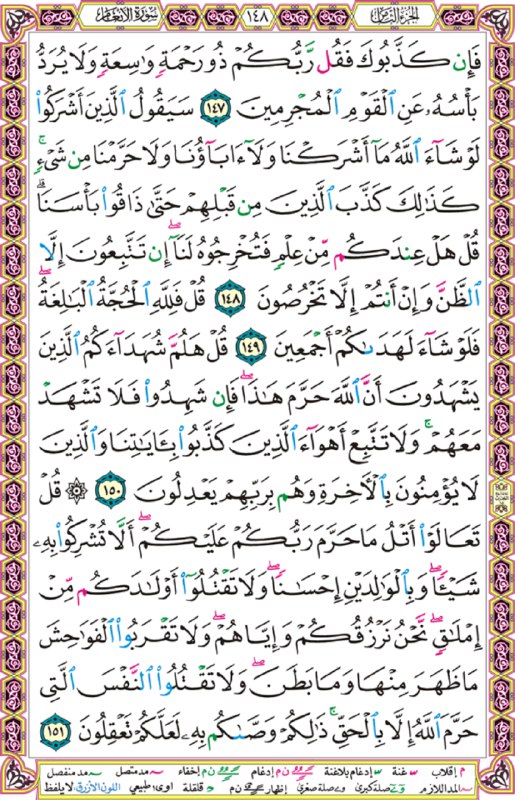 الجزء الثامن ١٤٨ سورة الأنعام
فَإِن كَذَّبُوكَ فَقُل رَّبُّكُمْ ذُو رَحْمَةٍ وَٰسِعَةٍ وَلَا يُرَدُّ
بَأْسُهُۥ عَنِ ٱلْقَوْمِ ٱلْمُجْرِمِينَ ١٤٧ سَيَقُولُ ٱلَّذِينَ أَشْرَكُوا۟
لَوْ شَآءَ ٱللَّهُ مَآ أَشْرَكْنَا وَلَآ ءَابَآؤُنَا وَلَا حَرَّمْنَا مِن شَىْءٍۚ
كَذَٰلِكَ كَذَّبَ ٱلَّذِينَ مِن قَبْلِهِمْ حَتَّىٰ ذَاقُوا۟ بَأْسَنَاۗ
قُلْ هَلْ عِندَكُم مِّنْ عِلْمٍ فَتُخْرِجُوهُ لَنَآۖ إِن تَتَّبِعُونَ إِلَّا
ٱلظَّنَّ وَإِنْ أَنتُمْ إِلَّا تَخْرُصُونَ ١٤٨ قُلْ فَلِلَّهِ ٱلْحُجَّةُ ٱلْبَٰلِغَةُۖ
فَلَوْ شَآءَ لَهَدَىٰكُمْ أَجْمَعِينَ ١٤٩ قُلْ هَلُمَّ شُهَدَآءَكُمُ ٱلَّذِينَ
يَشْهَدُونَ أَنَّ ٱللَّهَ حَرَّمَ هَٰذَاۖ فَإِن شَهِدُوا۟ فَلَا تَشْهَدْ
مَعَهُمْۚ وَلَا تَتَّبِعْ أَهْوَآءَ ٱلَّذِينَ كَذَّبُوا۟ بِـَٔايَٰتِنَا وَٱلَّذِينَ
لَا يُؤْمِنُونَ بِٱلْـَٔاخِرَةِ وَهُم بِرَبِّهِمْ يَعْدِلُونَ ١٥٠ ۞ قُلْ
تَعَالَوْا۟ أَتْلُ مَا حَرَّمَ رَبُّكُمْ عَلَيْكُمْۖ أَلَّا تُشْرِكُوا۟ بِهِۦ
شَيْـًٔاۖ وَبِٱلْوَٰلِدَيْنِ إِحْسَٰنًاۖ وَلَا تَقْتُلُوٓا۟ أَوْلَٰدَكُم مِّنْ
إِمْلَٰقٍۖ نَّحْنُ نَرْزُقُكُمْ وَإِيَّاهُمْۖ وَلَا تَقْرَبُوا۟ ٱلْفَوَٰحِشَ
مَا ظَهَرَ مِنْهَا وَمَا بَطَنَۖ وَلَا تَقْتُلُوا۟ ٱلنَّفْسَ ٱلَّتِى
حَرَّمَ ٱللَّهُ إِلَّا بِٱلْحَقِّۚ ذَٰلِكُمْ وَصَّىٰكُم بِهِۦ لَعَلَّكُمْ تَعْقِلُونَ ١٥١